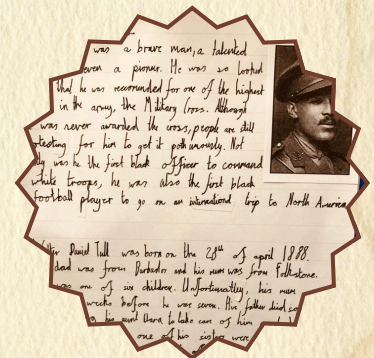 was a brave man, a talented
even a pioner. He was so looked
that he was recomended for one of the highest
in the army, the Military Cross. Although
was never awarded the cross, people are still
for him to get it posthumously. Not
was he the first black officer to command
white troops, he was also the first black
football player to go on an international trip to North America
David Tull was born on the 28th of april 1888.
dad was from Barbados and his mum was from Folkstone.
was one of six children. Unfortunatley, his mum
weeks before he was seven. His father died
his aunt there to take care of him
one of his sisters were